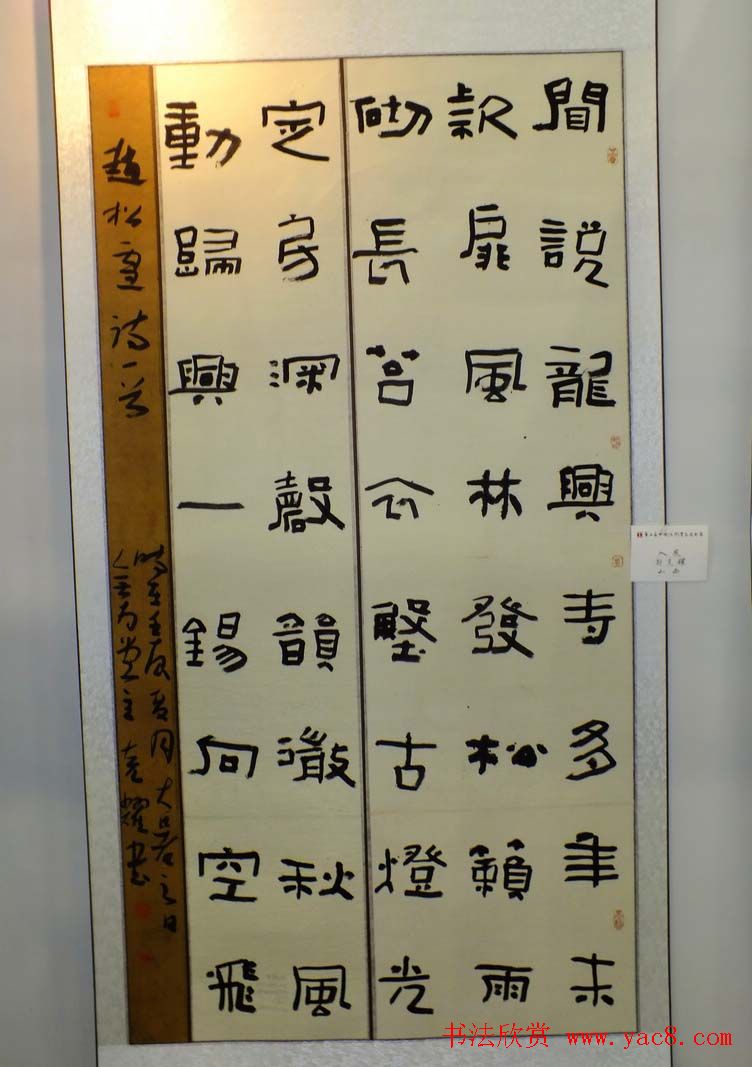 聞說龍興寺多年未
款扉風林發松籟雨
砌長苔衣壂古燈光
定房深磬韻微秋風
動歸興一錫向空飛
趙松雪詩一首
時在壬辰夏月大暑之日
堂主克耀書
入展
山西
书法欣赏 www.yac8.com